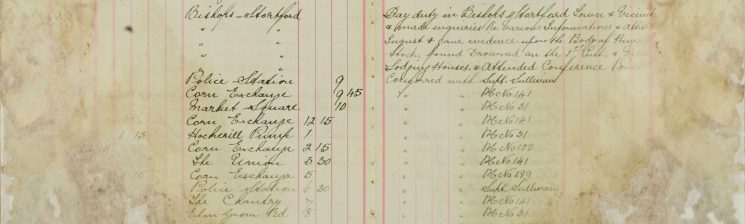 Bishops-Stortford Day duty in Bishops Stortford Town &
" " & made enquiries Re Various Informations &
" " Inquest & gave evidence upon the Body of
" " found Drowned on the 1st
Lodging Houses. & Attended Conference
Police Station 9 Conferred with Supt. Sullivan
Corn Exchange 9 45 " " PC No 141
Market Square 10 " PC No 31
Corn Exchange 12 15 " " PC No 141
1 15 Hockerill Pump 1 " " PC No 31
Corn Exchange 2 15 " " PC No 100
The Union 3 30 " " PC No 141
Corn Exchange 5 " " PC No 289
Police Station 6 30 " " Supt. Sullivan
The Chantry 7 " " PC No 141
Elm Grove Rd 8 " " PC No 31